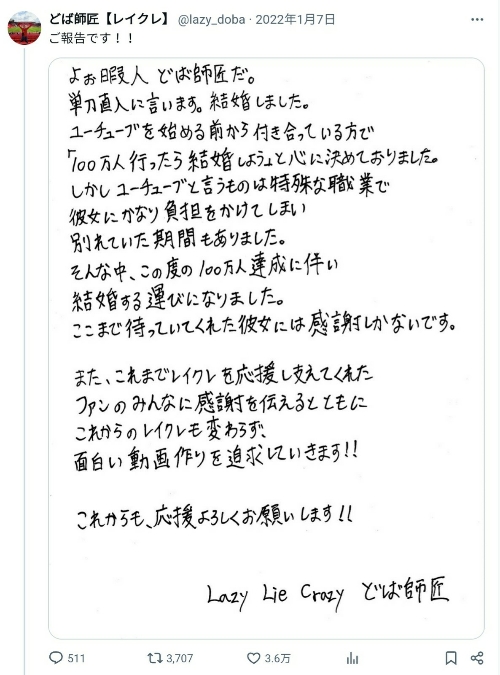 どば師匠【レイクレ】 @lazy_doba · 2022年1月7日
ご報告です！！
よぉ暇人 どば師匠だ。
単刀直入に言います。結婚しました。
ユーチューブを始める前から付き合っている方で
「100万人行ったら結婚しよう」と心に決めておりました。
しかしユーチューブと言うものは特殊な職業で
彼女にかなり負担をかけてしまい
別れていた期間もありました。
そんな中、この度の100万人達成に伴い
結婚する運びになりました。
ここまで待っていてくれた彼女には感謝しかないです。
また、これまでレイクレを応援し支えてくれた
ファンのみんなに感謝を伝えるとともに
これからのレイクレも変わらず、
面白い動画作りを追求していきます!!
これからも、応援よろしくお願いします!!
Lazy Lie Crazy どば師匠
511 3,707 3.6万